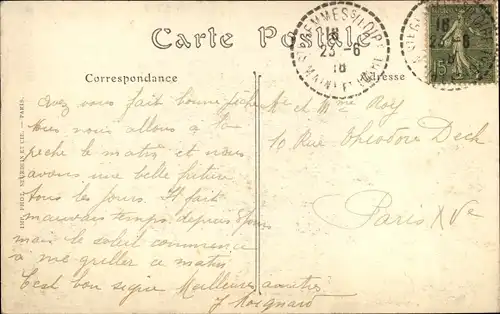 Carte Postale
Correspondance
Adresse
Avez vous fait bonne pêche
Nous nous allons à la
pêche le matin et nous
avons une belle friture
tous les jours. Il fait
mauvais temps depuis 8 jours
mais le soleil commence
à me griller ce matin
C'est bon signe Meilleures amitiés
M et Mme Roy
10 Rue Théodore Deck
Paris XVe
IMP. PHOT. NEURDEIN ET CIE. — PARIS.
GENNES S/LOIRE
18
23 - 6
18
MAINE ET LOIRE
15